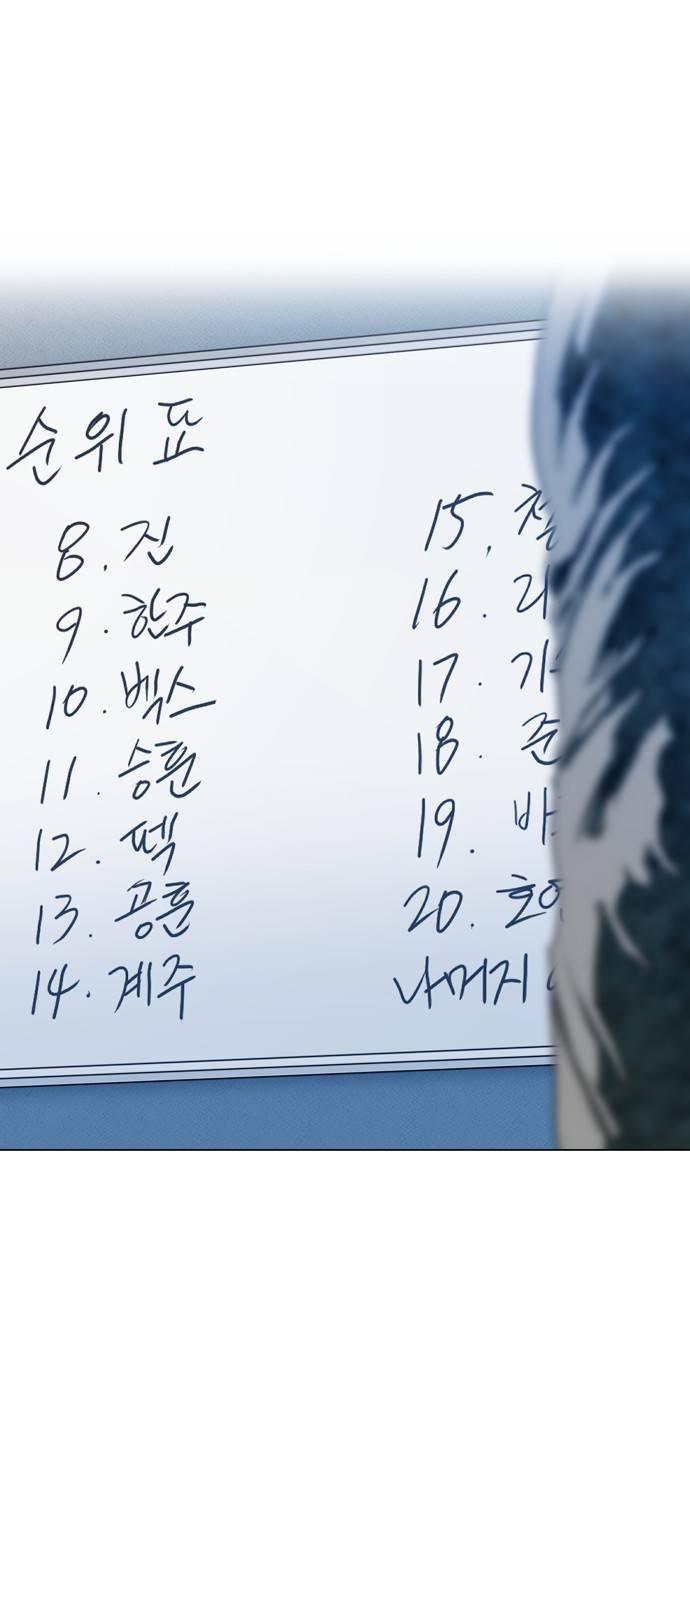 순위표
8. 진
9. 한주
10. 벡스
11. 승훈
12. 떽
13. 공훈
14. 계주
15.
16.
17.
18. 준
19.
20.
나머지